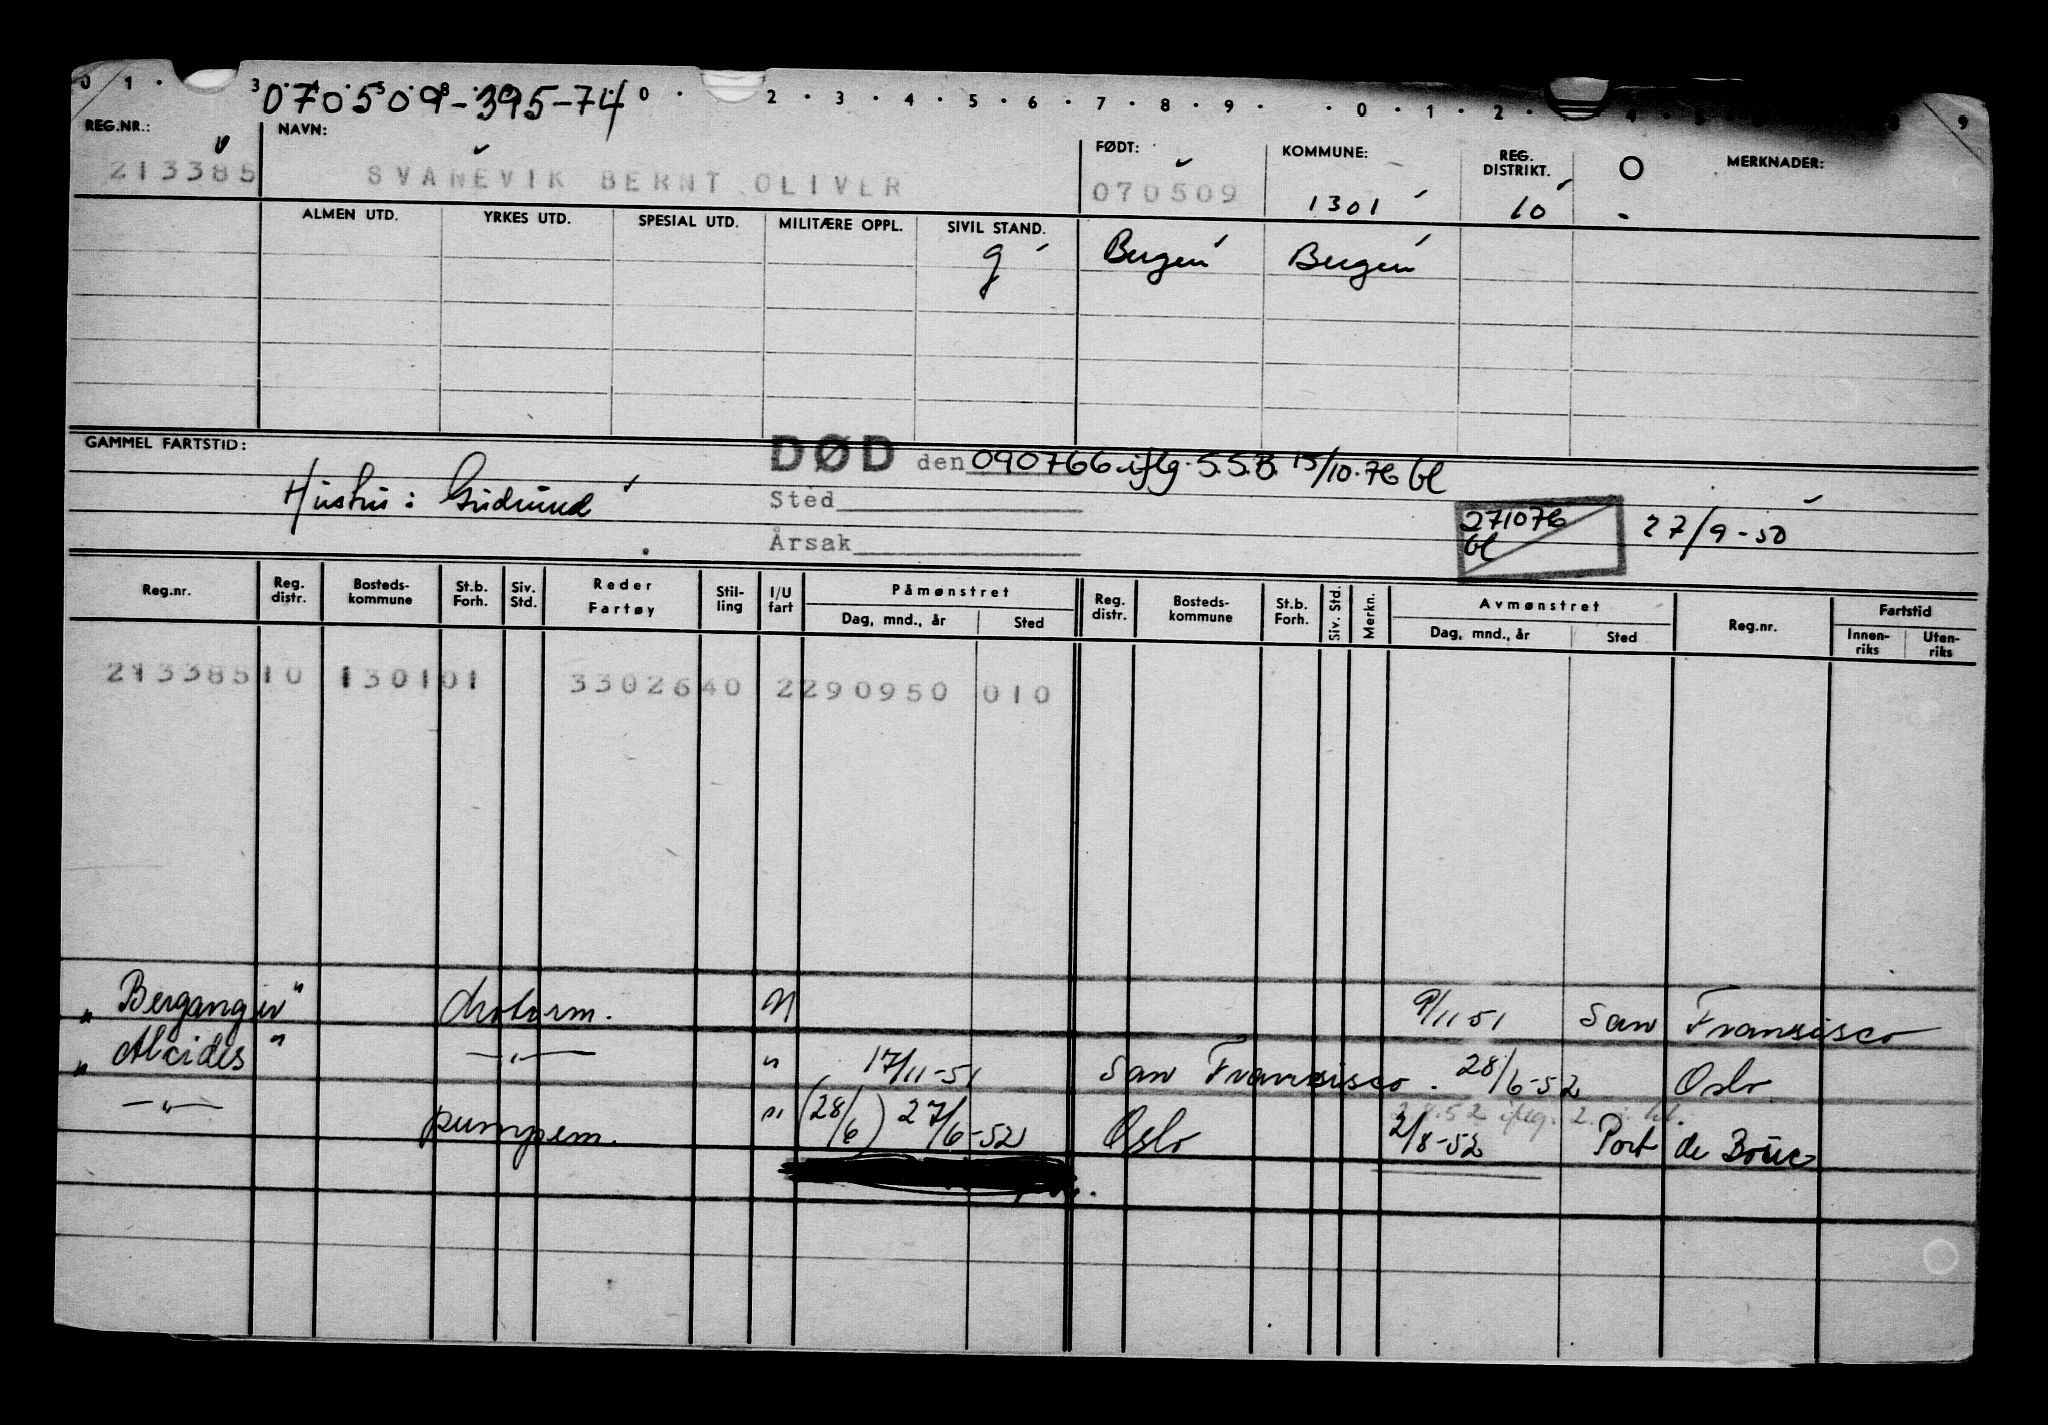 070509-395-74
0 1 · 3 · · 5 · 8 · 0 · 2 · 3 · 4 · 5 · 6 · 7 · 8 · 9 · · 0 · 1 · 2 · 4 · 5 · 8 9
REG.NR.: NAVN: FØDT: KOMMUNE: REG. DISTRIKT. O MERKNADER:
213385 SVANEVIK BERNT OLIVER 070509 1301 10 -
ALMEN UTD. YRKES UTD. SPESIAL UTD. MILITÆRE OPPL. SIVIL STAND.
g Bergen Bergen
GAMMEL FARTSTID:
DØD den 090766 iflg. S.S.B. 15/10.76 bl
Hustru: Gudrund
Sted
271076 bl
27/9-50
Årsak
Reg.nr. Reg. distr. Bosteds-kommune St.b. Forh. Siv. Std. Reder Fartøy Stil-ling I/U fart Påmønstret Reg. distr. Bosteds-kommune St.b. Forh. Siv. Std. Merkn. Avmønstret Reg.nr. Fartstid
Dag, mnd., år Sted Dag, mnd., år Sted Innen-riks Uten-riks
213385 10 1301 01 330264 0 2 290950 010
"Berganger" motorm. U 9/11 51 San Fransisco
"Alcides" —"— " 17/11-51 San Fransisco. 28/6-52 Oslo
—"— pumpem. " (28/6) 27/6-52 Oslo 2/8-52 Port de Bouc